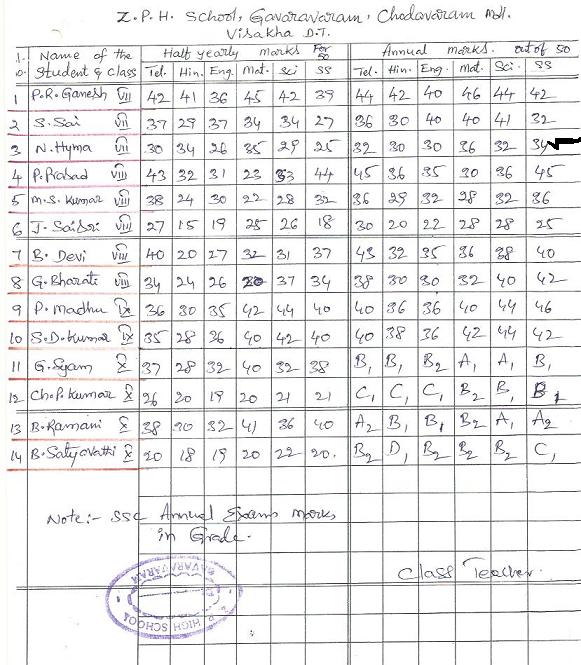 Z.P.H. School, Gavaravaram, Chodavaram Mdl.
Visakha D.T.
Name of the Student & class Half yearly marks For 50 Annual marks. out of 50
Tel. Hin. Eng. Mat. Sci SS Tel. Hin. Eng. Mat. Sci. SS
1 P.R. Ganesh VII 42 41 36 45 42 39 44 42 40 46 44 42
2 S. Sai VII 37 29 37 34 34 27 36 30 40 40 41 32
3 N. Hyma VII 30 34 26 35 29 25 32 30 30 36 32 34
4 P. Prasad VII 43 32 31 23 33 44 45 36 35 30 36 45
5 M.S. Kumar VIII 38 24 30 22 28 32 36 29 32 28 32 36
6 J. SaiSri VIII 27 15 19 25 26 18 30 20 22 28 28 25
7 B. Devi VIII 40 20 27 32 31 37 43 32 35 36 38 40
8 G. Bharati VIII 34 24 26 20 37 34 38 30 30 32 40 42
9 P. Madhu IX 36 30 35 42 44 40 40 36 36 40 44 46
10 S.D. Kumar IX 35 28 36 40 42 40 40 38 36 42 44 42
11 G. Syam X 37 28 32 40 32 38 B1 B1 B2 A1 A1 B1
12 Ch.P. Kumar X 26 20 19 20 21 21 C1 C1 C1 B2 B1 B1
13 B. Ramani X 38 30 32 41 36 40 A2 B1 B1 B2 A1 A2
14 B. Satyavathi X 20 18 19 20 22 20. B2 D1 B2 B2 B2 C1
Note:- SSC Annual Exams marks
in Grade.
Class Teacher.
Z.P. HIGH SCHOOL
GAVARAVARAM